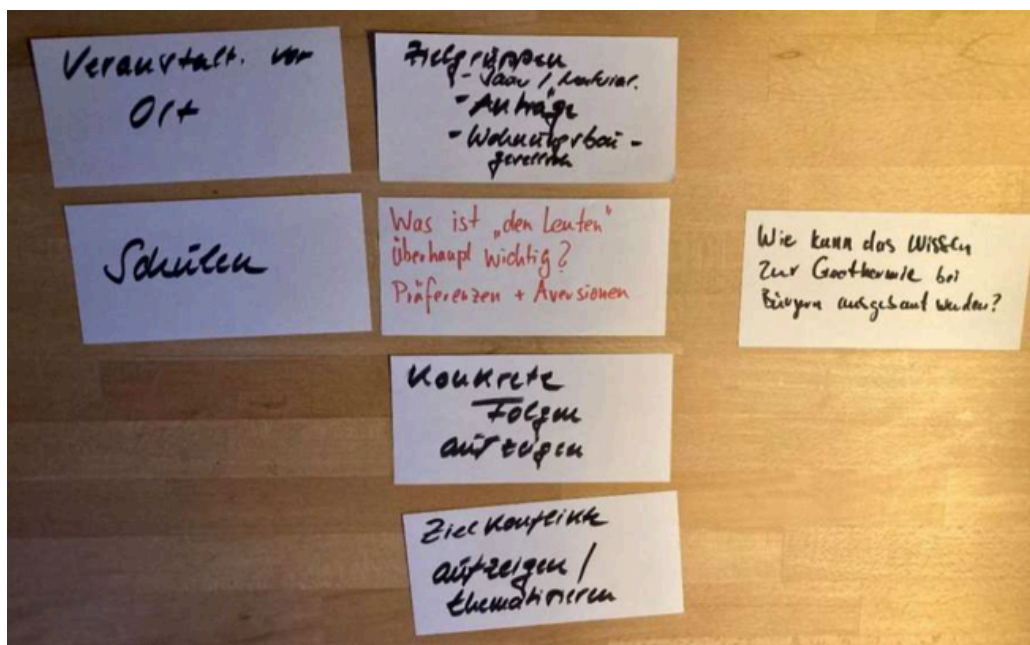 Veranstalt. vor
Ort
Zielgruppen
-
- Anträge
- Wohnungsbau-
gesellsch
Schülen
Was ist „den Leuten“
überhaupt wichtig?
Präferenzen + Aversionen
Wie kann das Wissen
zur Geothermie bei
Bürgern ausgebaut werden?
Konkrete
Folgen
aufzeigen
Zielkonflikte
aufzeigen /
thematisieren